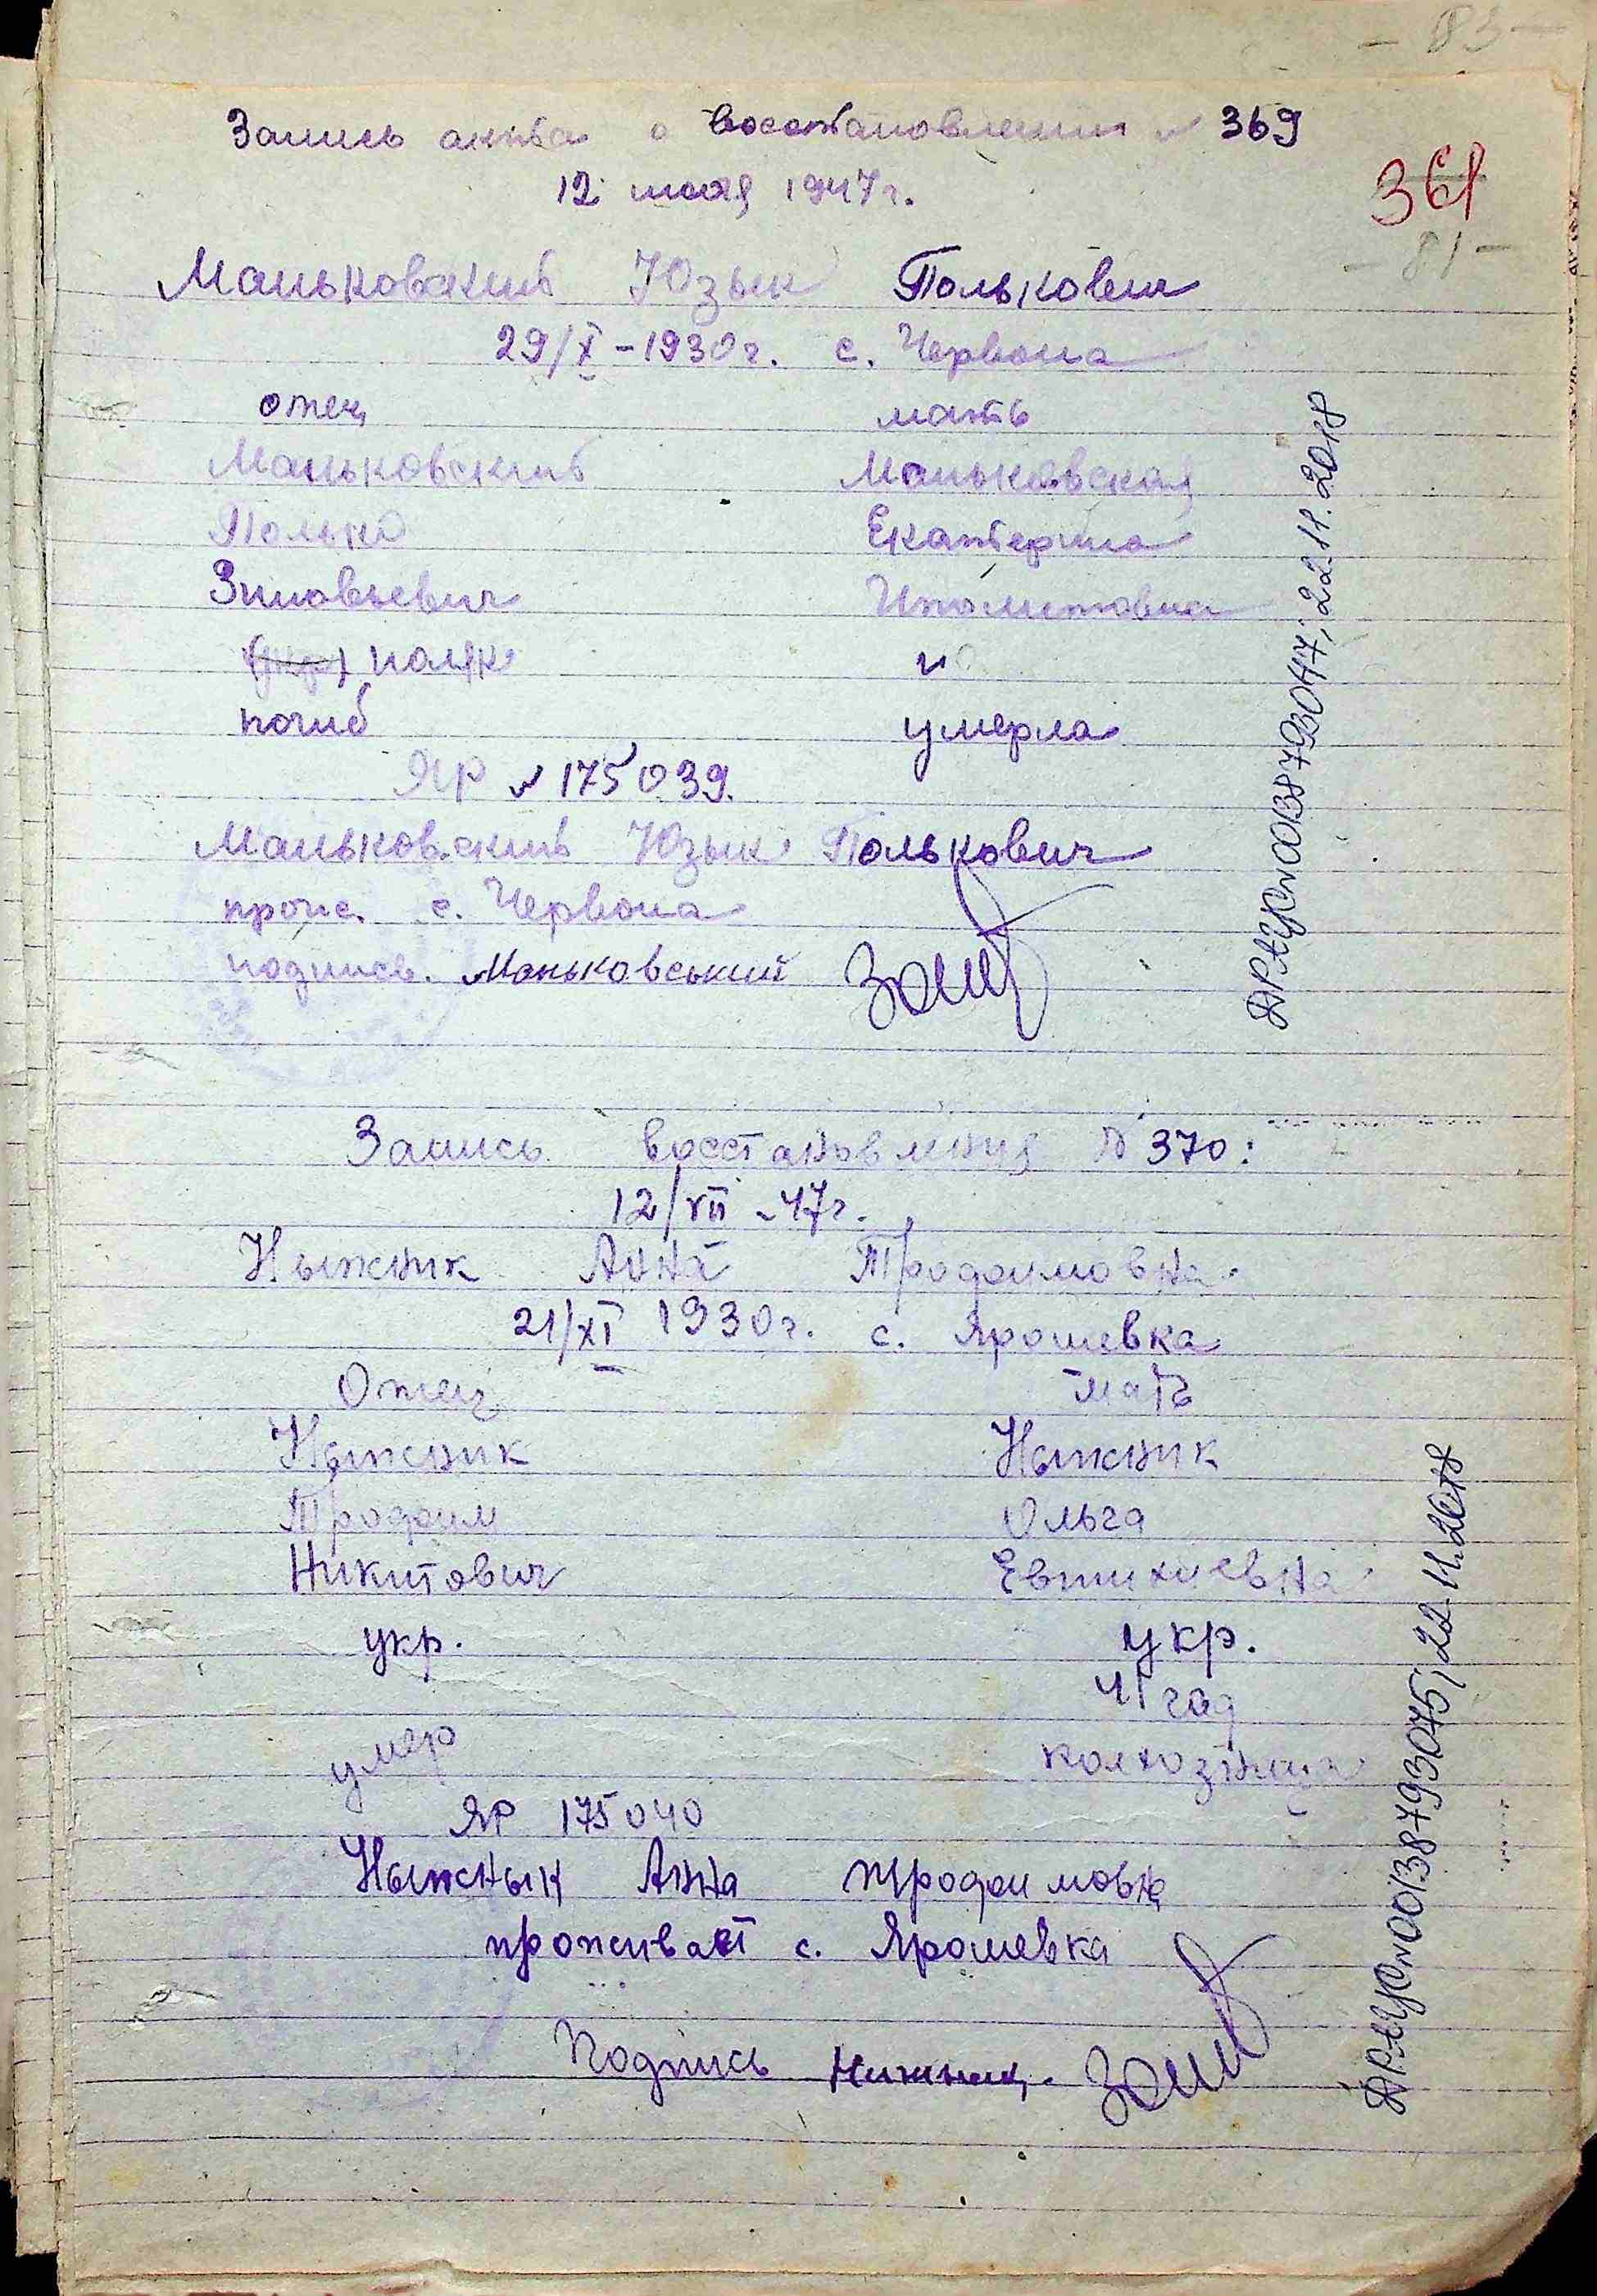 - 83 -
Запись акта о восстановлении № 369
12 июля 1947 г.
361
- 81 -
Маньковский Юзык Полькович
29/X - 1930 г. с. Червона
отец мать
Маньковский Маньковская
Полько Екатерина
Зиновьевич Иполитовна
(укр) поляк
погиб умерла
ЯР № 175039.
Маньковский Юзык Полькович
прож. с. Червона
подпись. Маньковський
ДРАЦС № 00138793047; 22.11.2018
Запись восстановления № 370:
12/VII - 47 г.
Ныжник Анна Трофимовна
21/XI 1930 г. с. Ярошевка
Отец мать
Ныжник Ныжник
Трофим Ольга
Никитович Евтихиевна
укр. укр.
41 год
умер колхозница
ЯР 175040
Ныжнык Анна Трофимовна
проживает с. Ярошевка
Подпись
ДРАЦС № 00138793075; 22.11.2018